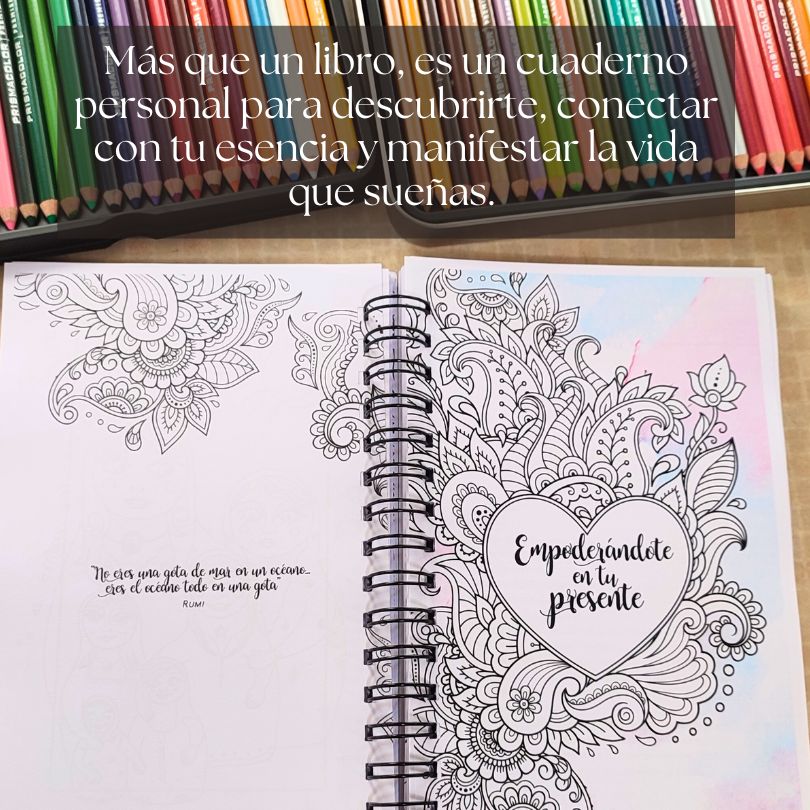 Más que un libro, es un cuaderno
personal para descubrirte, conectar
con tu esencia y manifestar la vida
que sueñas.
PRISMACOLOR
PRISMACOLOR
PRISMACOLOR
PRISMACOLOR
"No eres una gota de mar en un océano...
eres el océano todo en una gota"
RUMI
Empoderándote
en tu
presente